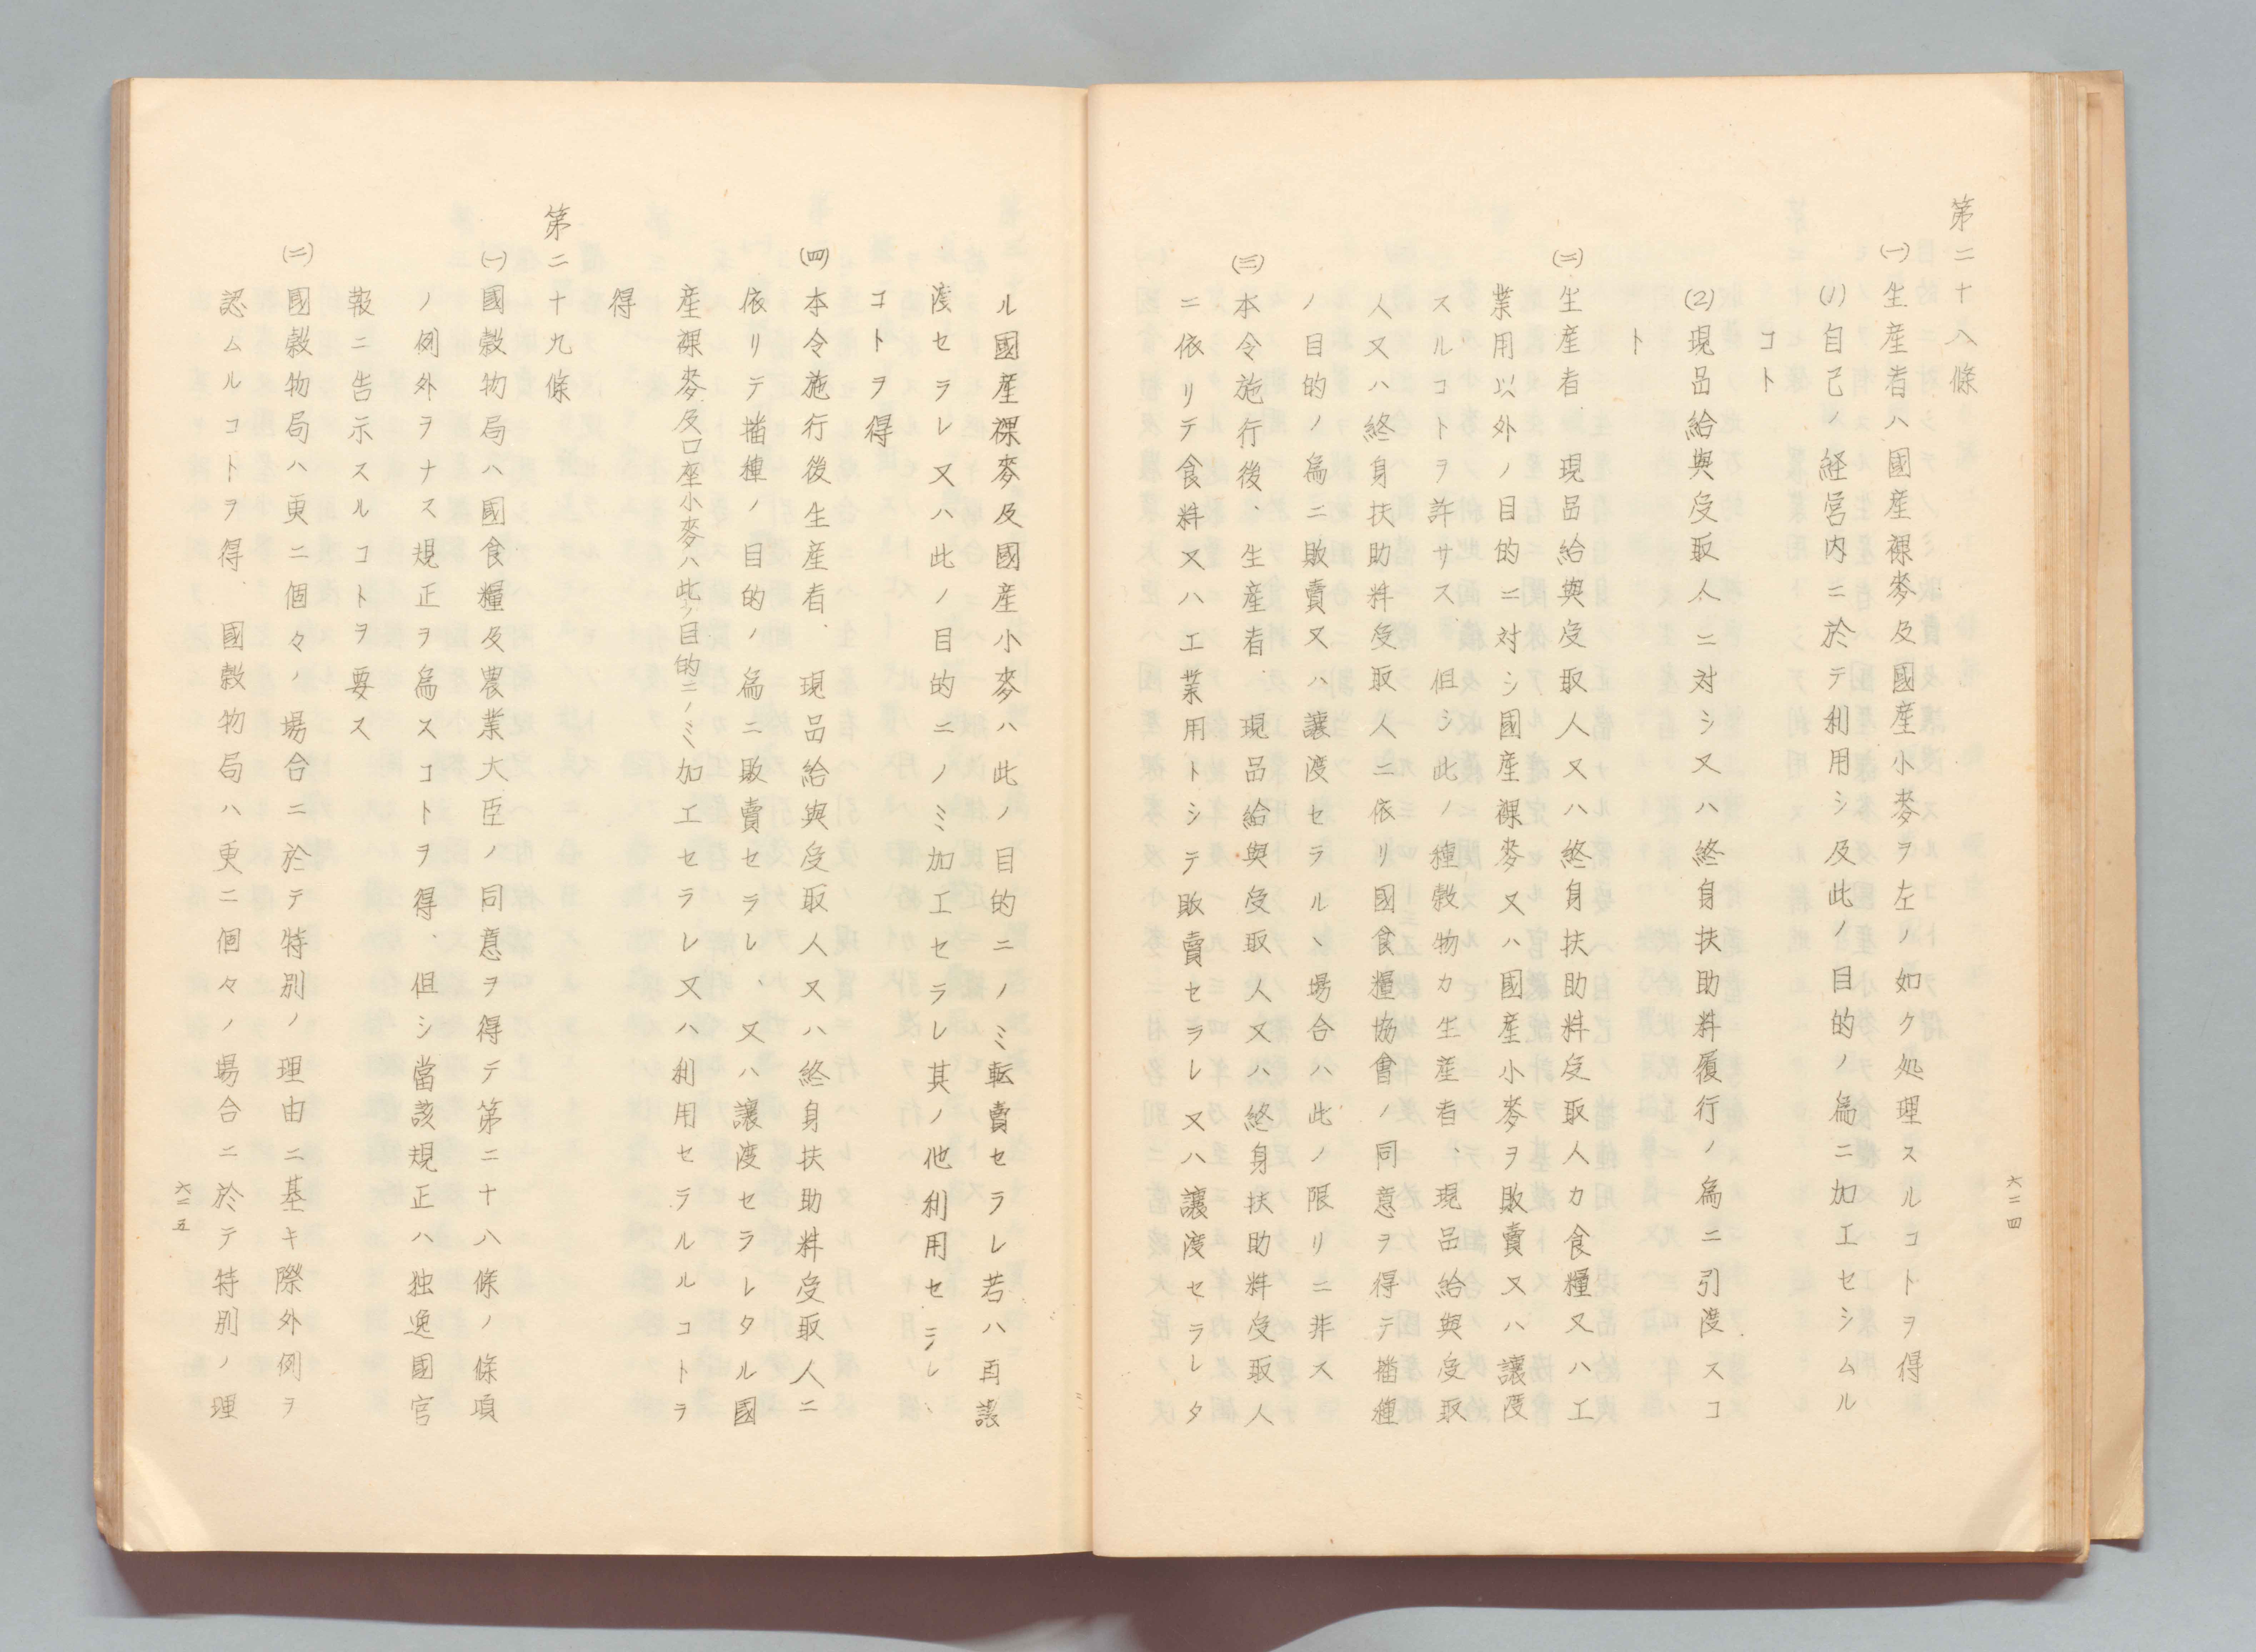 第二十八條
(一)生産者ハ國産裸麥及國産小麥ヲ左ノ如ク処理スルコトヲ得
(1)自己ノ経営内ニ於テ利用シ及此ノ目的ノ為ニ加工セシムル
コト
(2)現品給與受取人ニ対シ又ハ終身扶助料履行ノ為ニ引渡スコ
ト
(二)生産者、現品給與受取人又ハ終身扶助料受取人カ食糧又ハ工
業用以外ノ目的ニ対シ國産裸麥又ハ國産小麥ヲ販賣又ハ讓渡
スルコトヲ許サス 但シ此ノ種穀物カ生産者、現品給與受取
人又ハ終身扶助料受取人ニ依リ國食糧協會ノ同意ヲ得テ播種
ノ目的ノ為ニ販賣又ハ讓渡セラルヽ場合ハ此ノ限リニ非ス
(三)本令施行後、生産者 現品給與受取人又ハ終身扶助料受取人
ニ依リテ食料又ハ工業用トシテ販賣セラレ又ハ讓渡セラレタ
六二四
ル國産裸麥及國産小麥ハ此ノ目的ニノミ転賣セラレ若ハ再讓
渡セラレ又ハ此ノ目的ニノミ加工セラレ其ノ他利用セラレヽ
コトヲ得
(四)本令施行後生産者、現品給與受取人又ハ終身扶助料受取人ニ
依リテ播種ノ目的ノ為ニ販賣セラレ、又ハ讓渡セラレタル國
産裸麥及口産小麥ハ此ノ目的ニノミ加工セラレ又ハ利用セラルルコトヲ
得
第二十九條
(一)國穀物局ハ國食糧及農業大臣ノ同意ヲ得テ第二十八條ノ條項
ノ例外ヲナス規正ヲ為スコトヲ得、但シ當該規正ハ独逸國官
報ニ告示スルコトヲ要ス
(二)國穀物局ハ更ニ個々ノ場合ニ於テ特別ノ理由ニ基キ際外例ヲ
認ムルコトヲ得、國穀物局ハ更ニ個々ノ場合ニ於テ特別ノ理
六二五